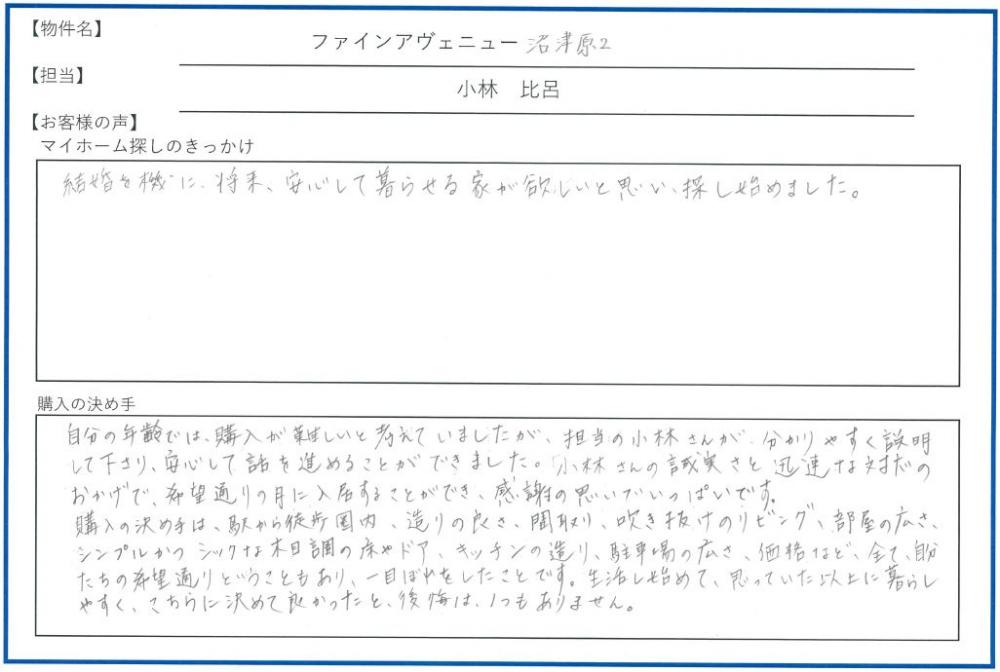 【物件名】
ファインアヴェニュー 沼津原2
【担当】
小林 比呂
【お客様の声】
マイホーム探しのきっかけ
結婚を機に、将来、安心して暮らせる家が欲しいと思い、探し始めました。
購入の決め手
自分の年齢では、購入が難しいと考えていましたが、担当の小林さんが、分かりやすく説明
して下さり、安心して話を進めることができました。小林さんの誠実さと迅速な対応の
おかげで、希望通りの月に入居することができ、感謝の思いでいっぱいです。
購入の決め手は、駅から徒歩圏内、造りの良さ、間取り、吹き抜けのリビング、部屋の広さ、
シンプルかつシックな木目調の床やドア、キッチンの造り、駐車場の広さ、価格など、全て、自分
たちの希望通りということもあり、一目ぼれをしたことです。生活し始めて、思っていた以上に暮らし
やすく、こちらに決めて良かったと、後悔は、1つもありません。